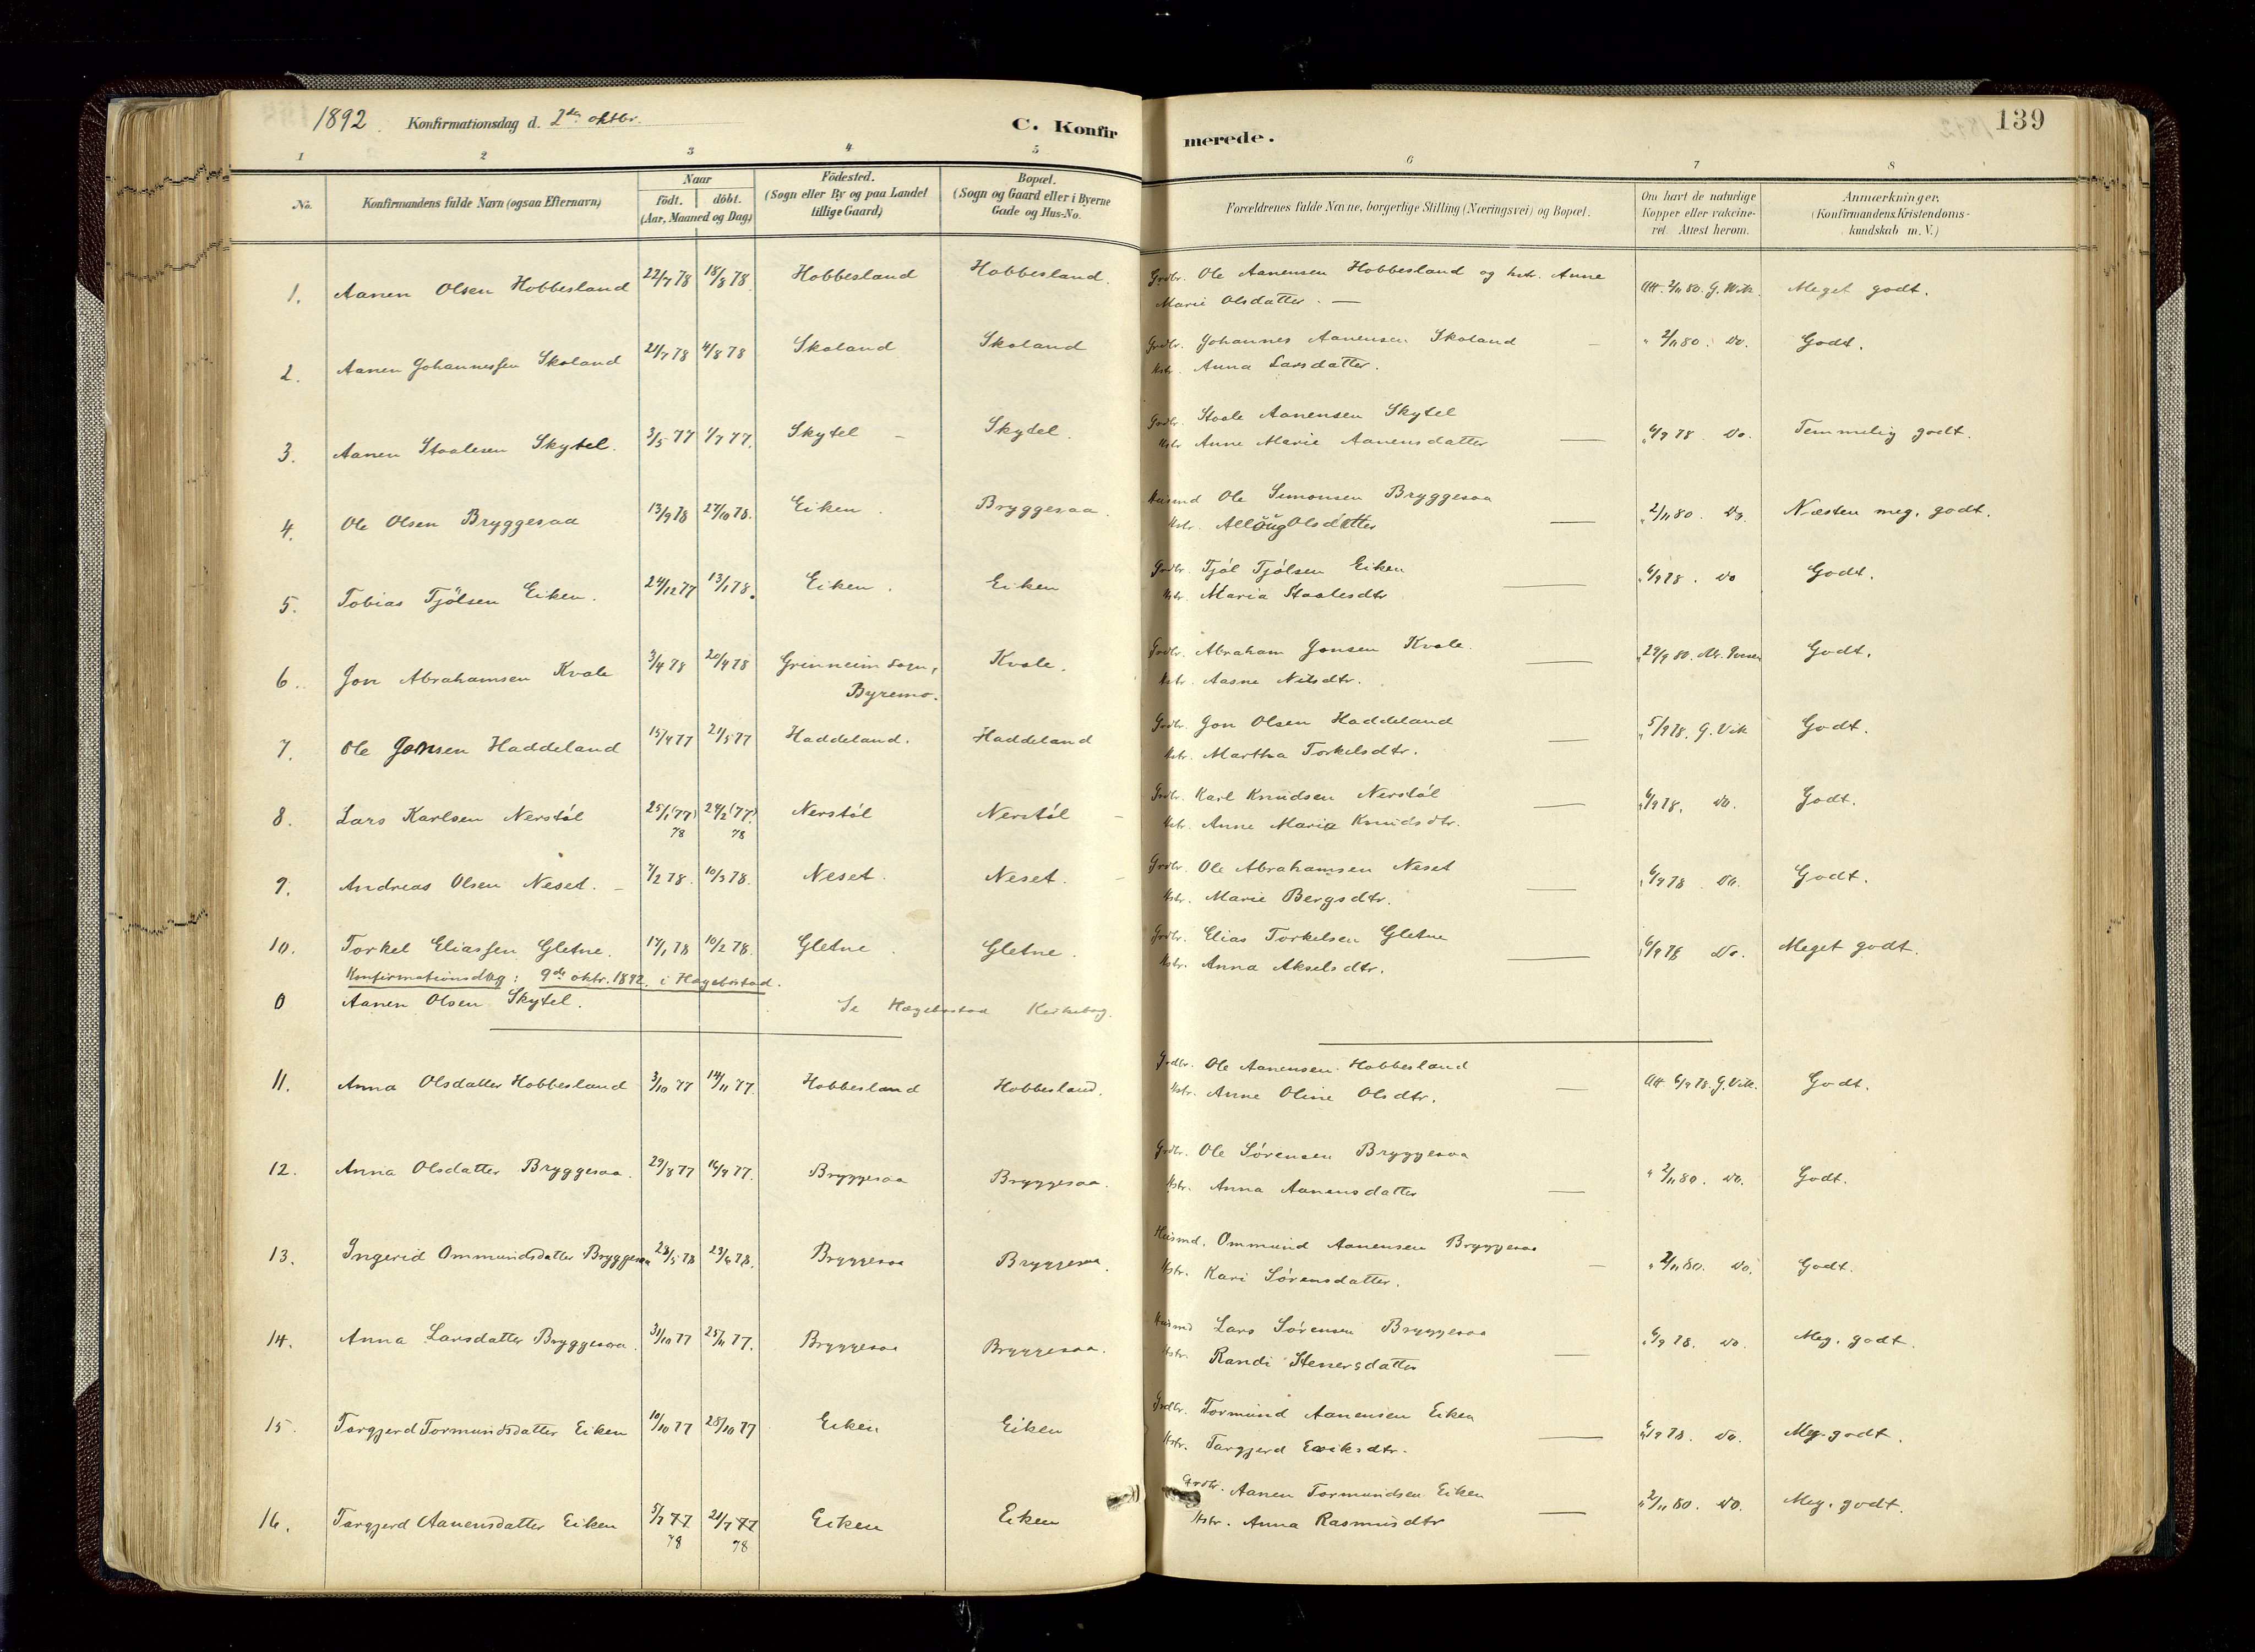 1892. Konfirmationsdag d. 2den oktbr. C. Konfirmerede. 139
1 2 3 4 5 6 7 8
No. Konfirmandens fulde Navn (ogsaa Efternavn) Naar födt. döbt. (Aar, Maaned og Dag) Födested. (Sogn eller By og paa Landet tillige Gaard) Bopæl. (Sogn og Gaard eller i Byerne Gade og Hus-No. Forældrenes fulde Navne, borgerlige Stilling (Næringsvei) og Bopæl. Om havt de naturlige Kopper eller vakcineret. Attest herom. Anmærkninger. (Konfirmandens Kristendomskundskab m. V.)
1. Aanen Olsen Hobbesland 22/7 78 18/8 78. Hobbesland Hobbesland. Grdbr. Ole Aanensen Hobbesland og hstr. Anne
Marie Olsdatter. — Att. 2/11 80. G. Vik. Meget godt.
2. Aanen Johannessen Skoland 21/7 78 4/8 78 Skoland Skoland Grdbr. Johannes Aanensen Skoland — " 2/11 80. Do. Godt.
Hstr. Anna Larsdatter.
3. Aanen Staalesen Skytel. 3/5 77 1/7 77. Skytel — Skytel. Grdbr. Staale Aanensen Skytel
Hstr. Anne Marie Aanensdatter — " 6/9 78. Do. Temmelig godt.
4. Ole Olsen Bryggesaa 13/9 78 27/10 78. Eiken. Bryggesaa. Husmd Ole Simonsen Bryggesaa
Hstr. Allöug Olsdatter — " 2/11 80. Do. Næsten meg. godt.
5. Tobias Tjölsen Eiken. 24/12 77 13/1 78. Eiken. Eiken Grdbr. Tjøl Tjølsen Eiken
Hstr. Maria Staalesdtr — " 6/9 78. Do Godt.
6. Jon Abrahamsen Kvale 3/4 78 20/4 78 Grinneim Sogn, Byremo. Kvale. Grdbr. Abraham Jonsen Kvale.
Hstr. Aasne Nilsdtr. — " 29/9 80. Godt.
7. Ole Jonsen Haddeland 15/4 77 21/5 77 Haddeland. Haddeland Grdbr. Jon Olsen Haddeland
Hstr. Martha Torkelsdtr. — " 5/9 78. G. Vik Godt.
8. Lars Karlsen Nerstøl 25/1 (77) 78 24/2 (77) 78 Nerstøl Nerstøl — Grdbr. Karl Knudsen Nerstøl
Hstr. Anne Maria Knudsdtr. — " 6/9 78. Do. Godt.
9. Andreas Olsen Neset. — 7/2 78. 10/3 78. Neset. Neset. — Grdbr. Ole Abrahamsen Neset
Hstr. Marie Bergsdtr. — " 6/9 78. Do. Godt.
10. Torkel Eliassen Gletne. 17/1 78 10/2 78. Gletne. Gletne. Grdbr. Elias Torkelsen Gletne
Hstr. Anna Akselsdtr. — " 6/9 78 Do. Meget godt.
Konfirmationsdag: 9de oktr. 1892. i Hægebostad.
0 Aanen Olsen Skytel. Se Hægebostad Kirkebog.
11. Anna Olsdatter Hobbesland 3/10 77 14/11 77. Hobbesland Hobbesland. Grdbr. Ole Aanensen Hobbesland
Hstr. Anne Oline Olsdtr. — Att 6/9 78. G. Vik. Godt.
12. Anna Olsdatter Bryggesaa. 29/8 77 16/9 77. Bryggesaa Bryggesaa. Grdbr. Ole Sørensen Bryggesaa
Hstr. Anna Aanensdatter — " 2/11 80. Do. Godt.
13. Ingerid Ommundsdatter Bryggesaa 28/5 78 23/6 78. Bryggesaa Bryggesaa. Husmd. Ommund Aanensen Bryggesaa
Hstr. Kari Sørensdatter. — " 2/11 80. Do. Godt.
14. Anna Larsdatter Bryggesaa. 31/10 77 25/11 77. Bryggesaa Bryggesaa. Husmd Lars Sørensen Bryggesaa
Hstr. Randi Stenersdatter — " 6/9 78. Do. Meg. godt.
15. Targjerd Tormundsdatter Eiken 10/10 77 28/10 77 Eiken Eiken Grdbr. Tormund Aanensen Eiken
Hstr. Targjerd Eriksdtr. — " 6/9 78. Do. Meg. godt.
16. Targjerd Aanensdatter Eiken 5/7 77 78 21/7 77 78 Eiken Eiken Grdbr. Aanen Tormundsen Eiken
Hstr. Anna Rasmusdtr — " 2/11 80. Do. Meg. godt.